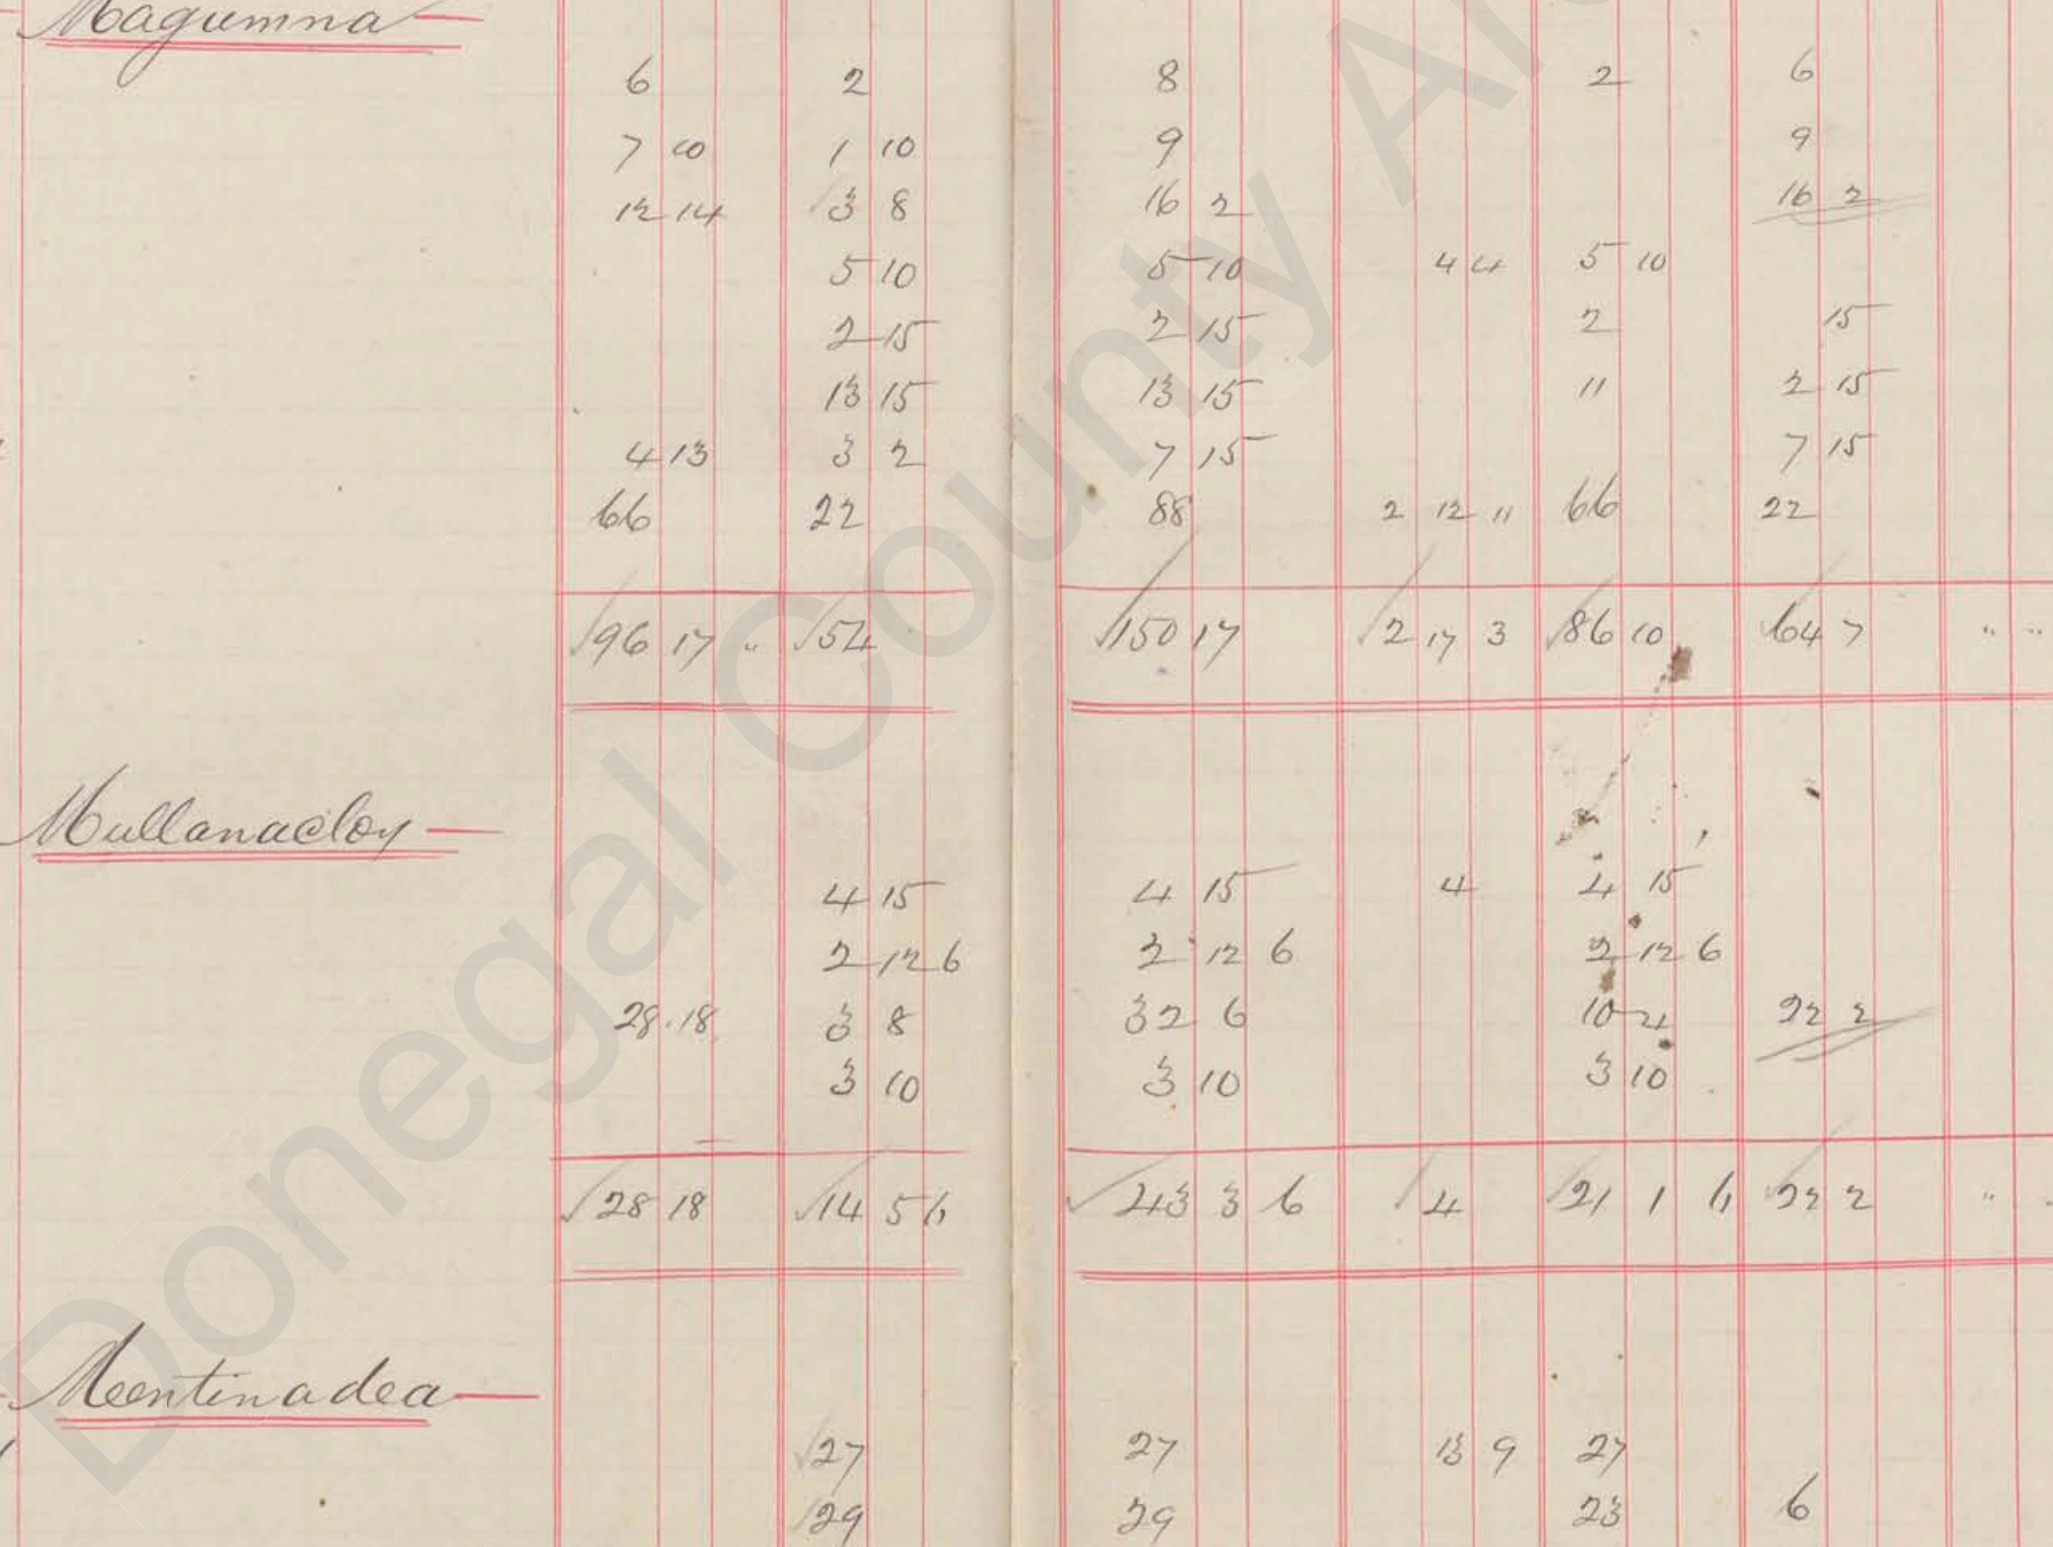 Magumna
6 2 8 2 6
7 10 1 10 9 9
12 14 3 8 16 2 16 2
5 10 5 10 4 4 5 10
2 15 2 15 2 15
13 15 13 15 11 2 15
4 13 3 2 7 15 7 15
66 22 88 2 12 11 66 22
96 17 " 54 150 17 2 17 3 86 10 64 7 " "
Mullanacloy
4 15 4 15 4 4 15
2 12 6 2 12 6 2 12 6
28 18 3 8 32 6 10 4 22 2
3 10 3 10 3 10
28 18 14 5 6 43 3 6 4 21 1 6 22 2 "
Meentinadea
27 27 13 9 27
29 29 23 6
Donegal County